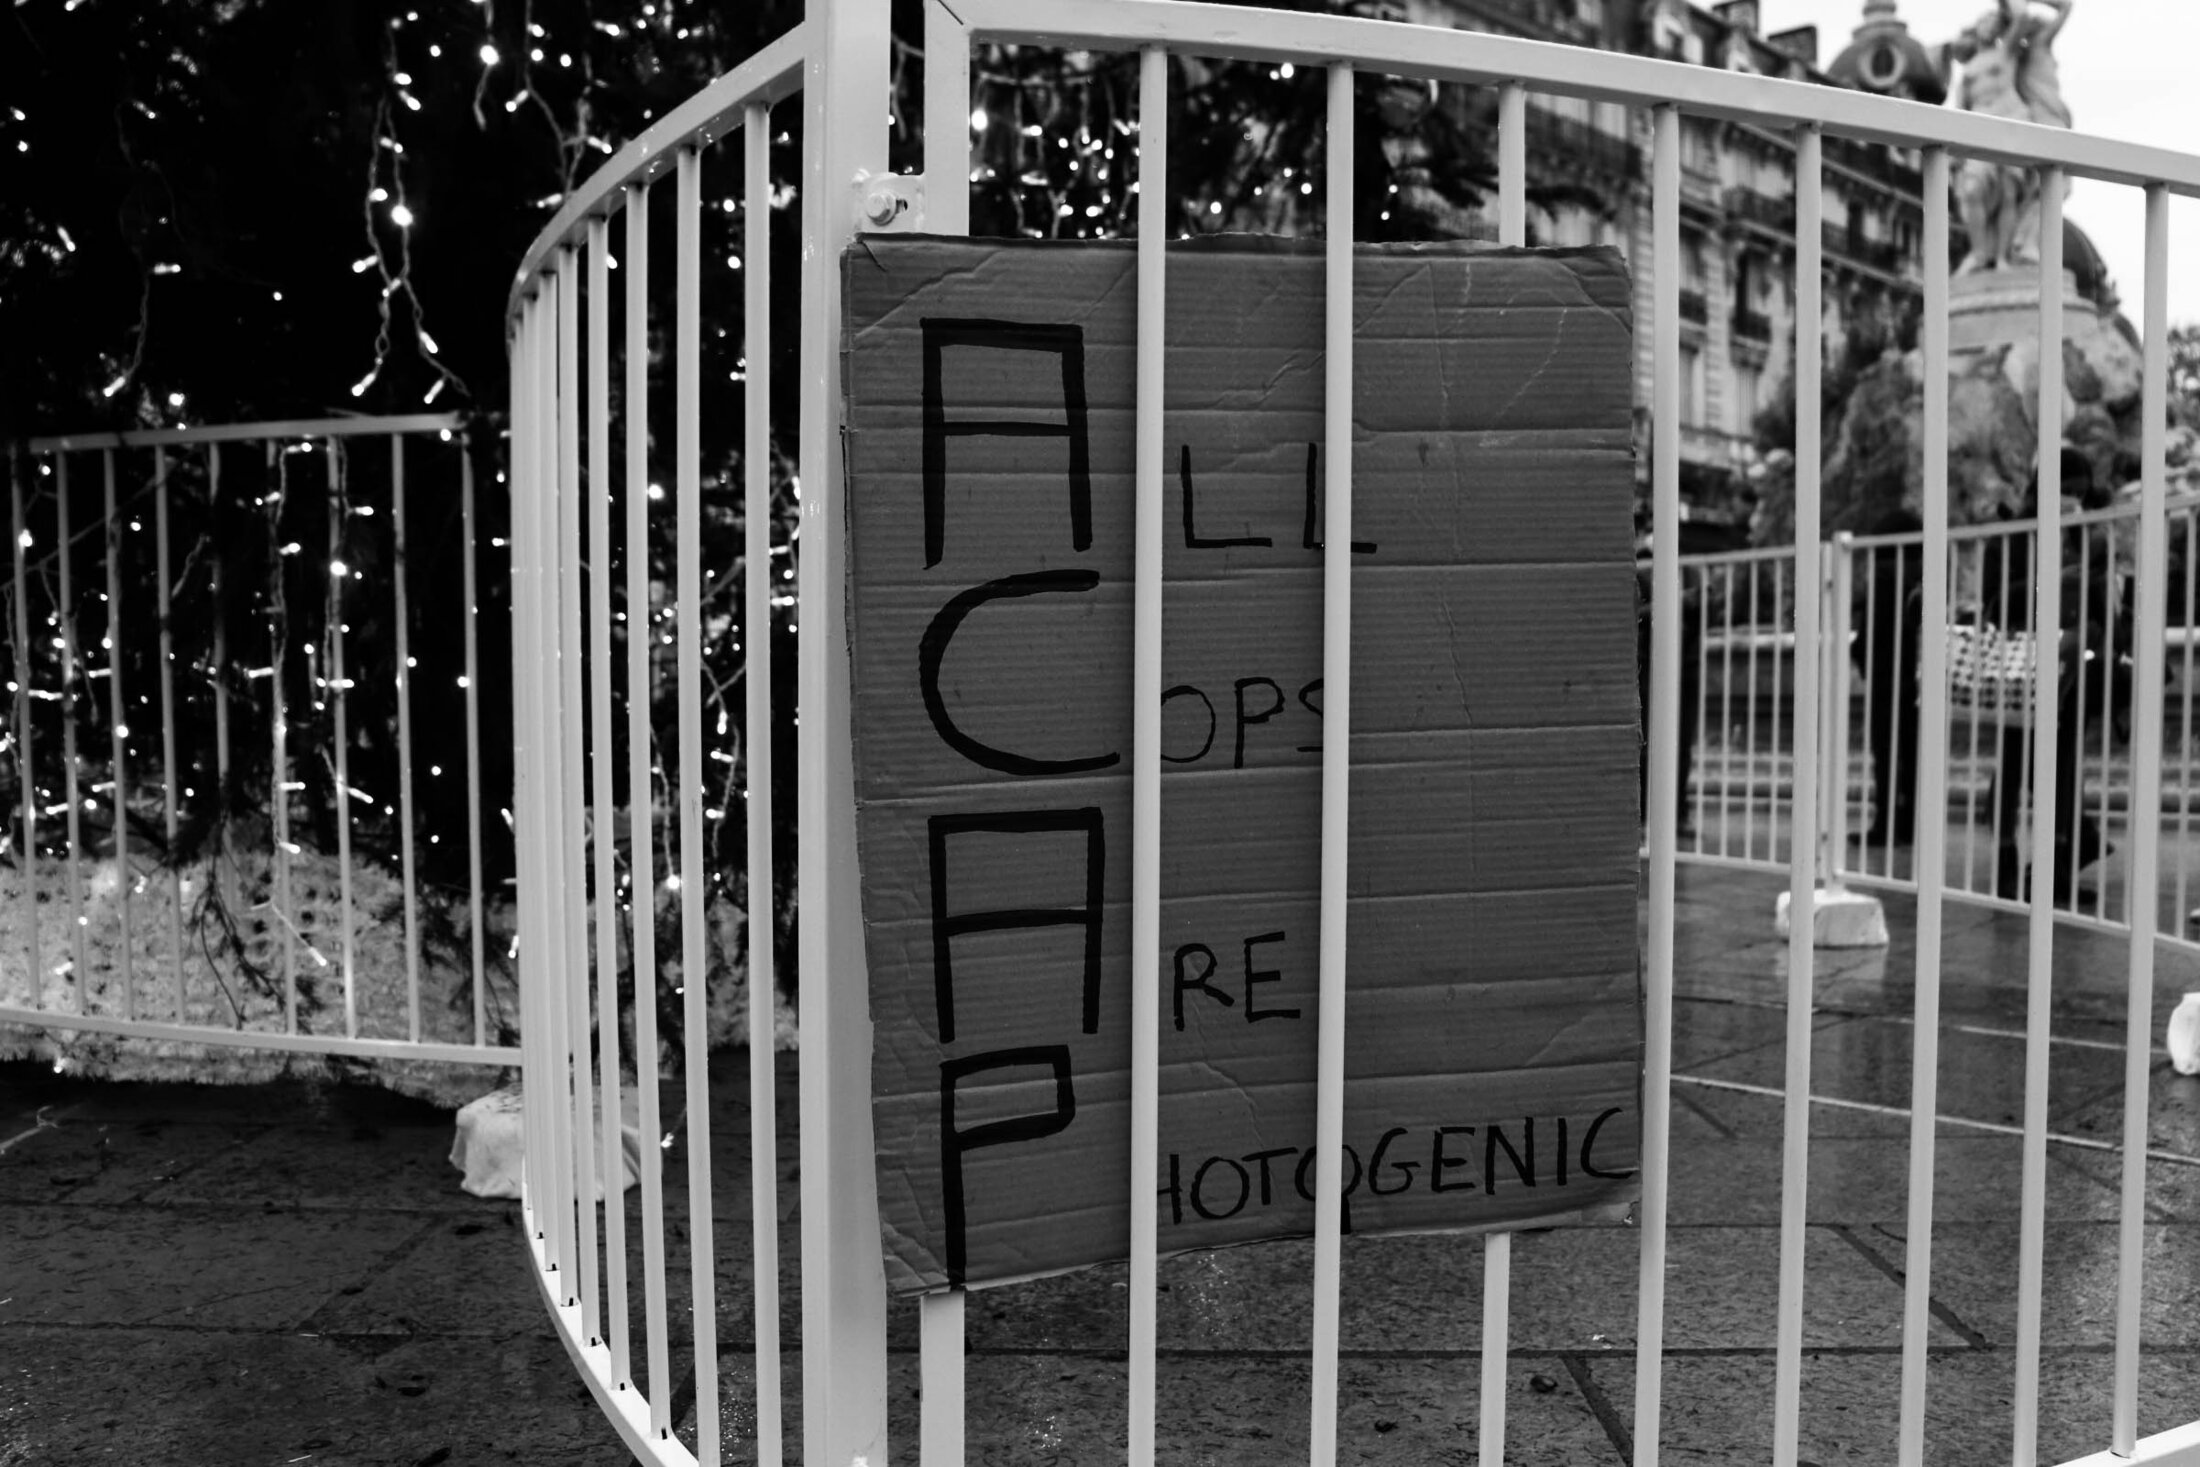 ALL
COPS
ARE
PHOTOGENIC